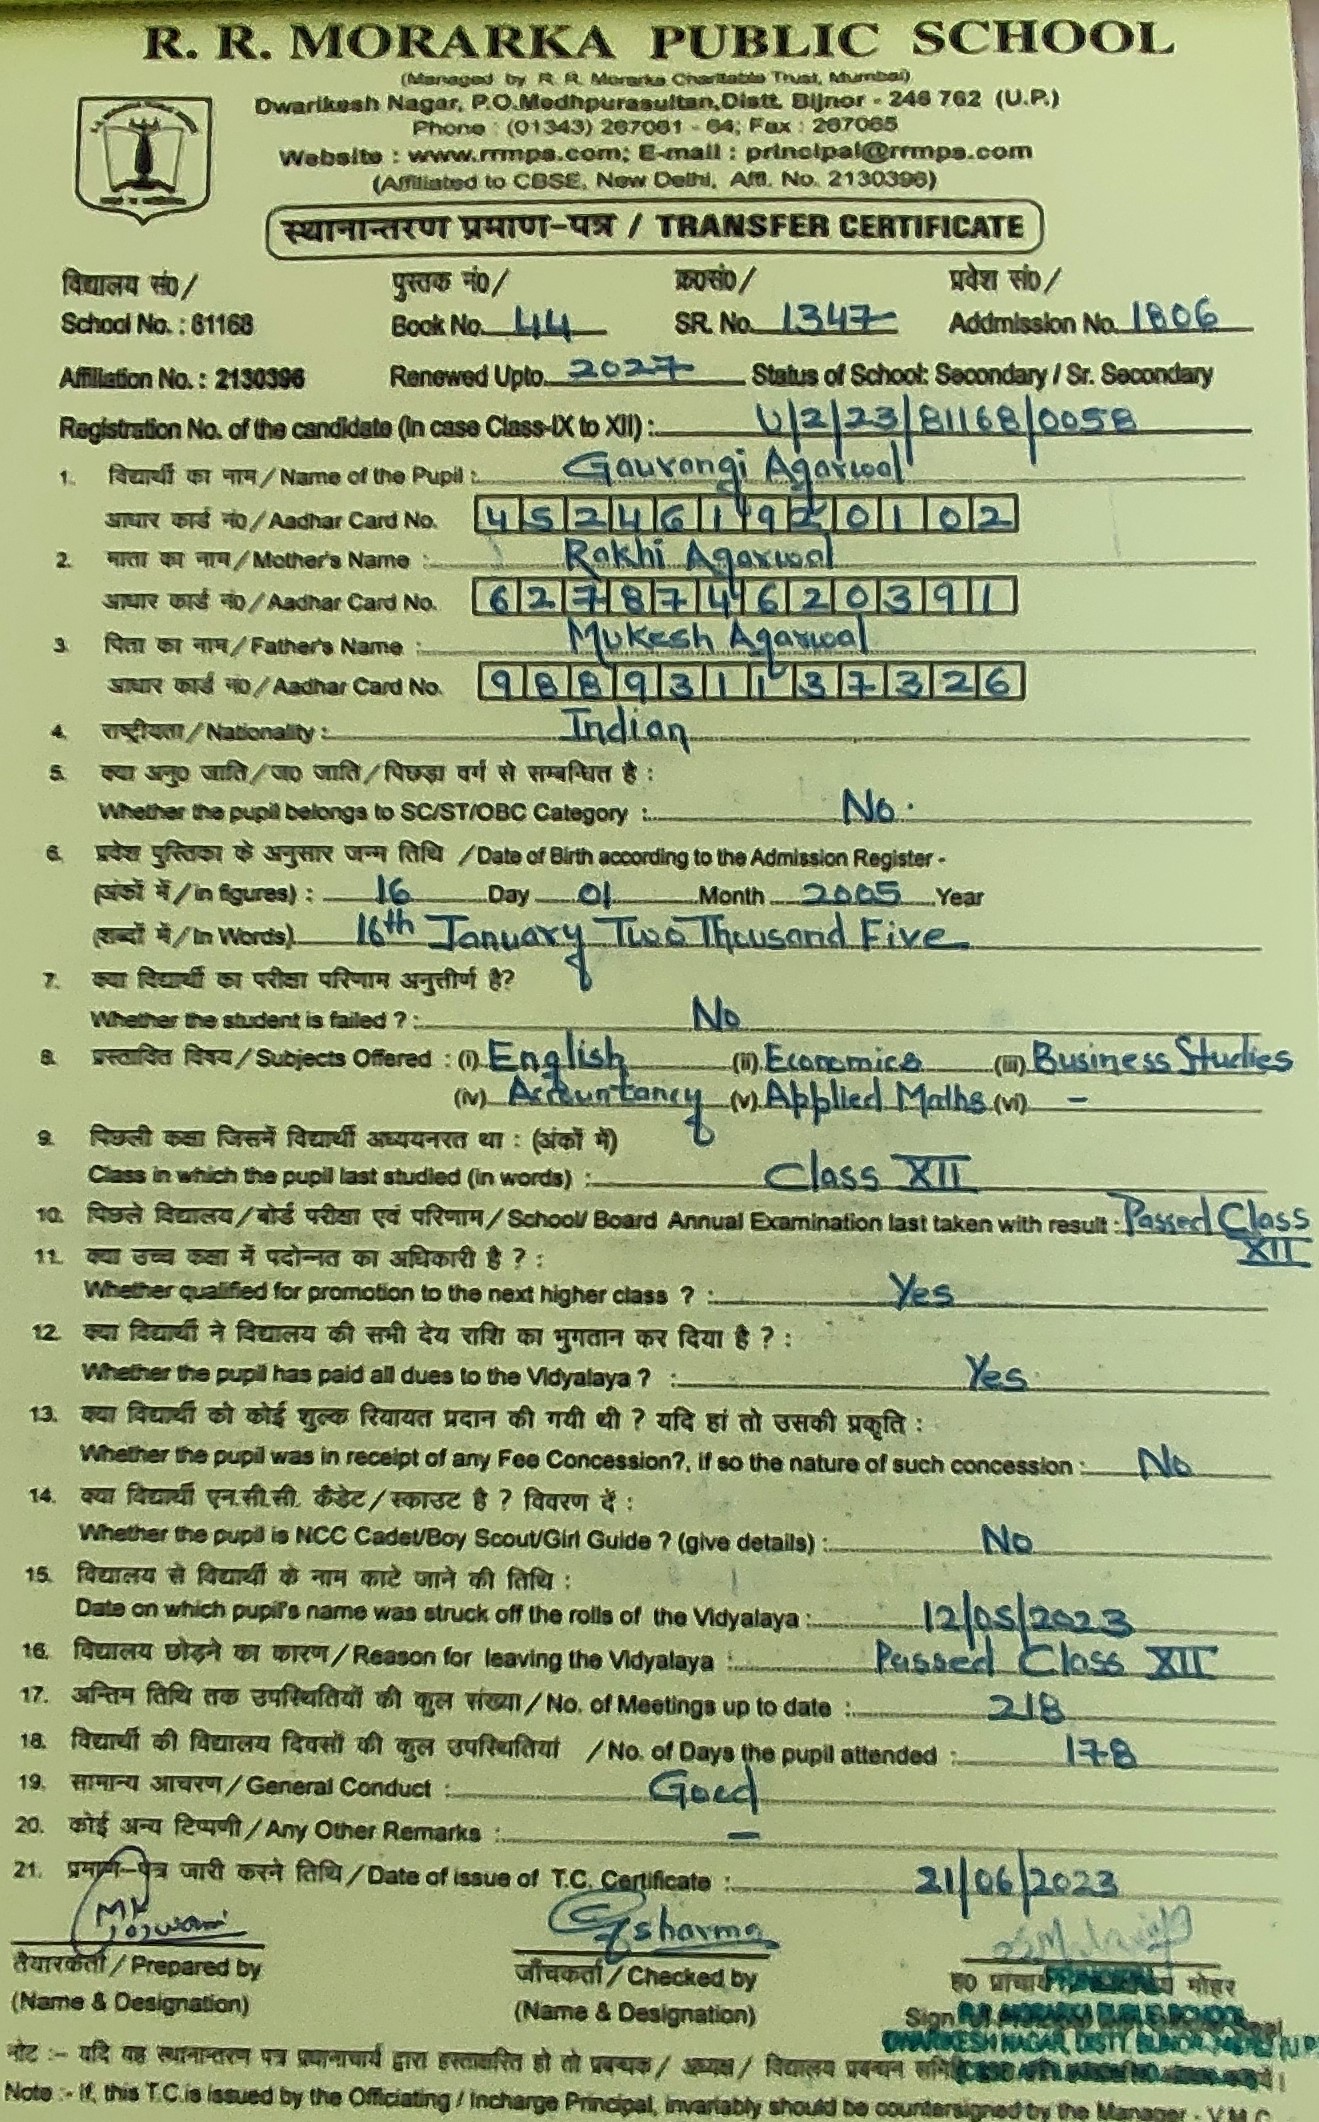 R. R. MORARKA PUBLIC SCHOOL
(Managed by R. R. Morarka Charitable Trust, Mumbai)
Dwarikesh Nagar, P.O.Medhpurasultan,Distt. Bijnor - 246 762 (U.P.)
Phone : (01343) 267061 - 64; Fax : 267065
Website : www.rrmps.com; E-mail : principal@rrmps.com
(Affiliated to CBSE, New Delhi, Affl. No. 2130396)
स्थानान्तरण प्रमाण-पत्र / TRANSFER CERTIFICATE
विद्यालय सं0/ पुस्तक नं0/ क्र0सं0/ प्रवेश सं0/
School No. : 81168 Book No. 44 SR. No. 1347 Addmission No. 1806
Affiliation No. : 2130396 Renewed Upto. 2027 Status of School: Secondary / Sr. Secondary
Registration No. of the candidate (in case Class-IX to XII) : U/2/23/81168/0058
1. विद्यार्थी का नाम/Name of the Pupil : Gaurangi Agarwal
आधार कार्ड नं0/Aadhar Card No. 452461920102
2. माता का नाम/Mother's Name : Rakhi Agarwal
आधार कार्ड नं0/Aadhar Card No. 627874620391
3. पिता का नाम/Father's Name : Mukesh Agarwal
आधार कार्ड नं0/Aadhar Card No. 988931137326
4. राष्ट्रीयता/Nationality : Indian
5. क्या अनु0 जाति/ज0 जाति/पिछड़ा वर्ग से सम्बन्धित है :
Whether the pupil belongs to SC/ST/OBC Category : No.
6. प्रवेश पुस्तिका के अनुसार जन्म तिथि /Date of Birth according to the Admission Register -
(अंकों में/in figures) : 16 Day 01 Month 2005 Year
(शब्दों में/In Words) 16th January Two Thousand Five
7. क्या विद्यार्थी का परीक्षा परिणाम अनुत्तीर्ण है?
Whether the student is failed ? : No
8. प्रस्तावित विषय/Subjects Offered : (i) English (ii) Economics (iii) Business Studies
(iv) Accountancy (v) Applied Maths (vi) -
9. पिछली कक्षा जिसमें विद्यार्थी अध्ययनरत था : (अंकों में)
Class in which the pupil last studied (in words) : Class XII
10. पिछले विद्यालय/बोर्ड परीक्षा एवं परिणाम/School/ Board Annual Examination last taken with result : Passed Class
XII
11. क्या उच्च कक्षा में पदोन्नत का अधिकारी है ? :
Whether qualified for promotion to the next higher class ? : Yes
12. क्या विद्यार्थी ने विद्यालय की सभी देय राशि का भुगतान कर दिया है ? :
Whether the pupil has paid all dues to the Vidyalaya ? : Yes
13. क्या विद्यार्थी को कोई शुल्क रियायत प्रदान की गयी थी ? यदि हां तो उसकी प्रकृति :
Whether the pupil was in receipt of any Fee Concession?, if so the nature of such concession : No
14. क्या विद्यार्थी एन.सी.सी. कैडेट/स्काउट है ? विवरण दें :
Whether the pupil is NCC Cadet/Boy Scout/Girl Guide ? (give details) : No
15. विद्यालय से विद्यार्थी के नाम काटे जाने की तिथि :
Date on which pupil's name was struck off the rolls of the Vidyalaya : 12/05/2023
16. विद्यालय छोड़ने का कारण/Reason for leaving the Vidyalaya : Passed Class XII
17. अन्तिम तिथि तक उपस्थितियों की कुल संख्या/No. of Meetings up to date : 218
18. विद्यार्थी की विद्यालय दिवसों की कुल उपस्थितियां /No. of Days the pupil attended : 178
19. सामान्य आचरण/General Conduct : Good
20. कोई अन्य टिप्पणी/Any Other Remarks : -
21. प्रमाण-पत्र जारी करने तिथि/Date of issue of T.C. Certificate : 21/06/2023
Gsharma
तैयारकर्ता/Prepared by जाँचकर्ता/Checked by ह0 प्राचार्य मोहर
(Name & Designation) (Name & Designation) Sign
R.R. MORARKA PUBLIC SCHOOL
DWARIKESH NAGAR, DISTT. BIJNOR
नोट :- यदि यह स्थानान्तरण पत्र प्रधानाचार्य द्वारा हस्ताक्षरित हो तो प्रबन्धक/ अध्यक्ष/ विद्यालय प्रबन्धन
Note :- If, this T.C.is issued by the Officiating / Incharge Principal, invariably should be countersigned by the Manager - V.M.C.